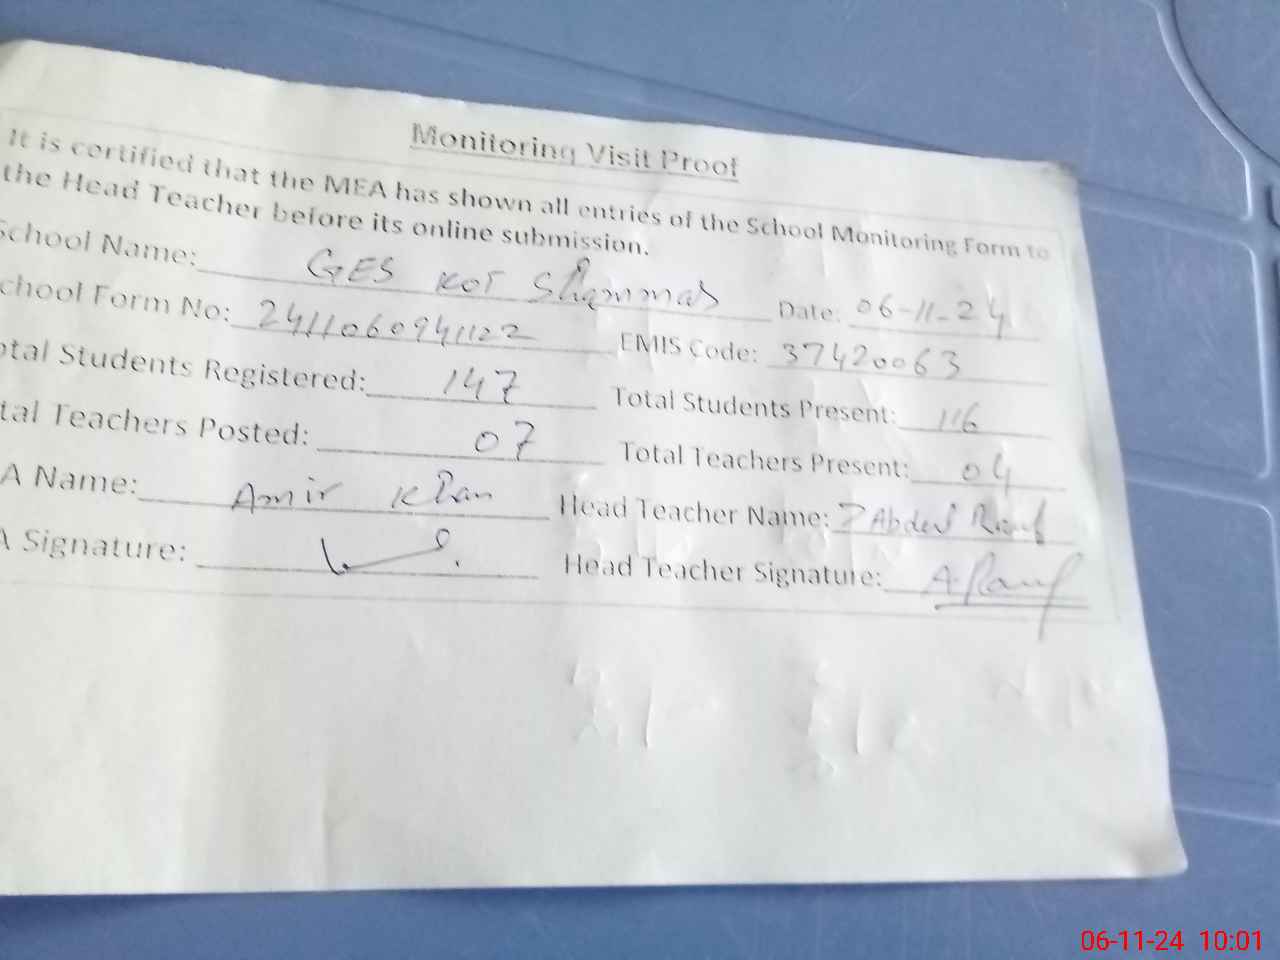 Monitoring Visit Proof
It is certified that the MEA has shown all entries of the School Monitoring Form to
the Head Teacher before its online submission.
School Name: GES KOT Shammas Date: 06-11-24
chool Form No: 2411060941122 EMIS Code: 37420063
otal Students Registered: 147 Total Students Present: 116
tal Teachers Posted: 07 Total Teachers Present: 04
A Name: Amir Khan Head Teacher Name: Abdul Rauf
A Signature: Head Teacher Signature: A Rauf
06-11-24 10:01